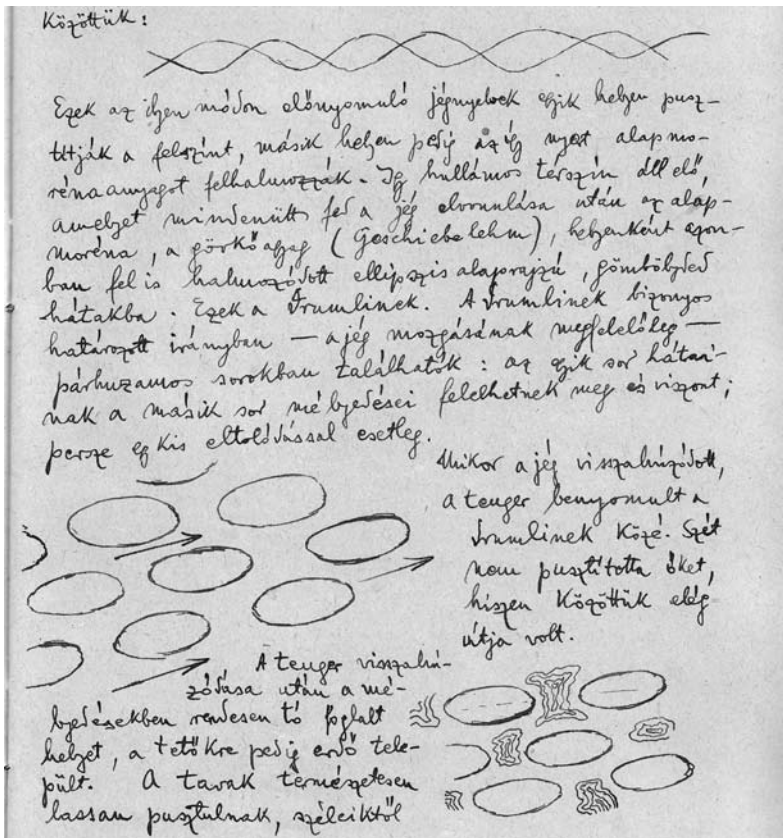 Közöttük:
Ezek az ilyen módon előnyomuló jégnyelvek egyik helyen pusz-
títják a felszínt, másik helyen pedig az így nyert alapmo-
rénaanyagot felhalmozzák. Így hullámos térszín áll elő,
amelyet mindenütt fed a jég elvonulása után az alap-
moréna, a görkőagyag (Geschiebelehm), helyenként azon-
ban fel is halmozódott ellipszis alaprajzú, gömbölyded
hátakba. Ezek a drumlinek. A drumlinek bizonyos
határozott irányban — a jég mozgásának megfelelőleg —
párhuzamos sorokban találhatók: az egyik sor hátai-
nak a másik sor mélyedései felelhetnek meg és viszont;
persze egy kis eltolódással esetleg.
Mikor a jég visszahúzódott,
a tenger benyomult a
drumlinek közé. Szét
nem pusztította őket,
hiszen közöttük elég
útja volt.
A tenger visszahú-
zódása után a mé-
lyedésekben rendesen tó foglalt
helyet, a tetőkre pedig erdő tele-
pült. A tavak természetesen
lassan pusztulnak, széleiktől